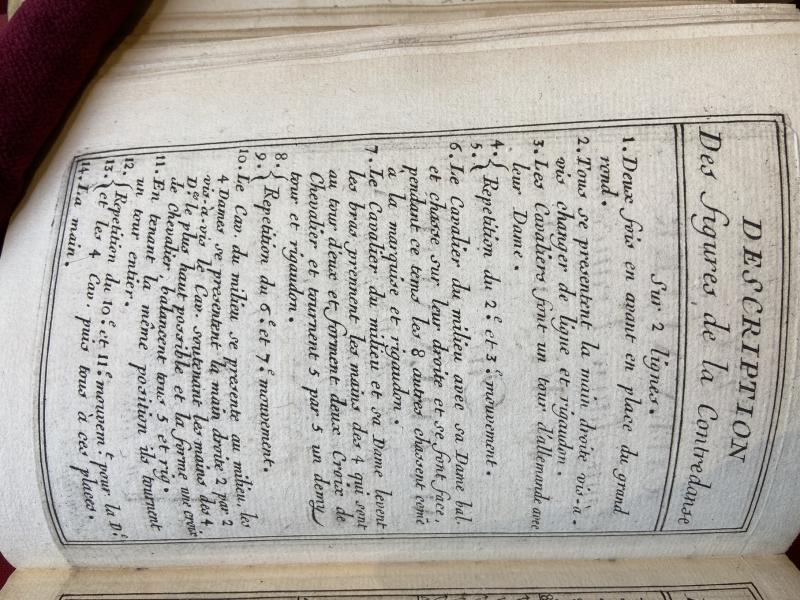 DESCRIPTION
Des figures de la Contredanse
Sur 2 lignes.
1. Deux fois en avant en place du grand
rond.
2. Tous se presentent la main droite vis-à-
vis changer de ligne et rigaudon.
3. Les Cavaliers font un tour d'allemande avec
leur Dame.
4. { Repetition du 2.e et 3.e mouvement.
5.
6. Le Cavalier du milieu avec sa Dame bal.
et chasse sur leur droite et se font face,
pendant ce tems les 8 autres chassent come
a la marquise et rigaudon.
7. Le Cavalier du milieu et sa Dame levent
les bras prennent les mains des 4 qui sont
au tour d'eux et forment deux Croix de
Chevalier et tournent 5 par 5 un demy
tour et rigaudon.
8. { Repetition du 6.e et 7.e mouvement.
9.
10. Le Cav. du milieu se presente au milieu les
4 Dames se presentent la main droite 2 par 2
vis-à-vis le Cav. soutenant les mains des 4
D.es le plus haut possible et la forme une croix
de Chevalier, balancent tous 5 et rig.
11. En tenant la même position ils tournent
un tour entier.
12. { Repetition du 10.e et 11.e mouvem.t pour la D.e
13. et les 4 Cav. puis tous à ces places.
14. La main.